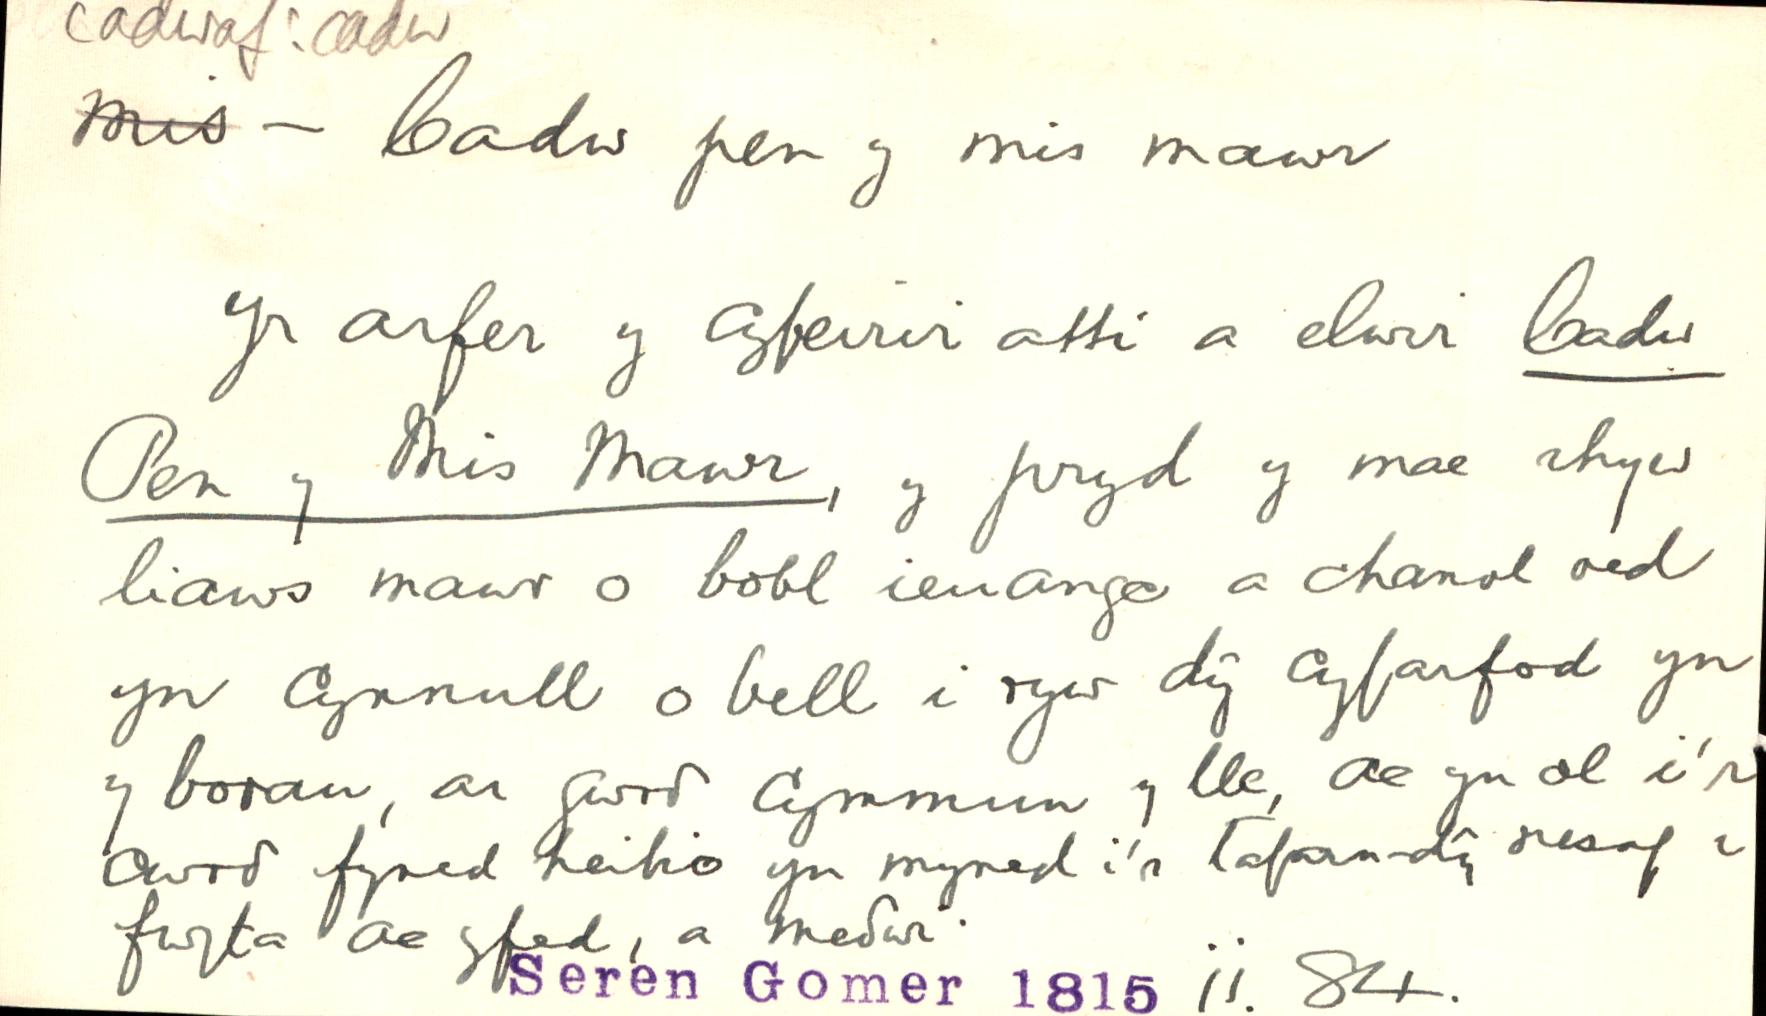 cadwaf: cadw
mis — Cadw pen y mis mawr
Yr arfer y cyfeirir atti a elwir Cadw
Pen y Mis Mawr, y pryd y mae rhyw
liaws mawr o bobl ieuangc a chanol oed
yn cynnull o bell i ryw dŷ cyfarfod yn
y borau, ar gwrđ cymmun y lle, ac yn ol i'r
cwrđ fyned heibio yn myned i'r tafarn-dŷ nesaf i
fwyta ac yfed, a međwi.
Seren Gomer 1815 ii. 84.